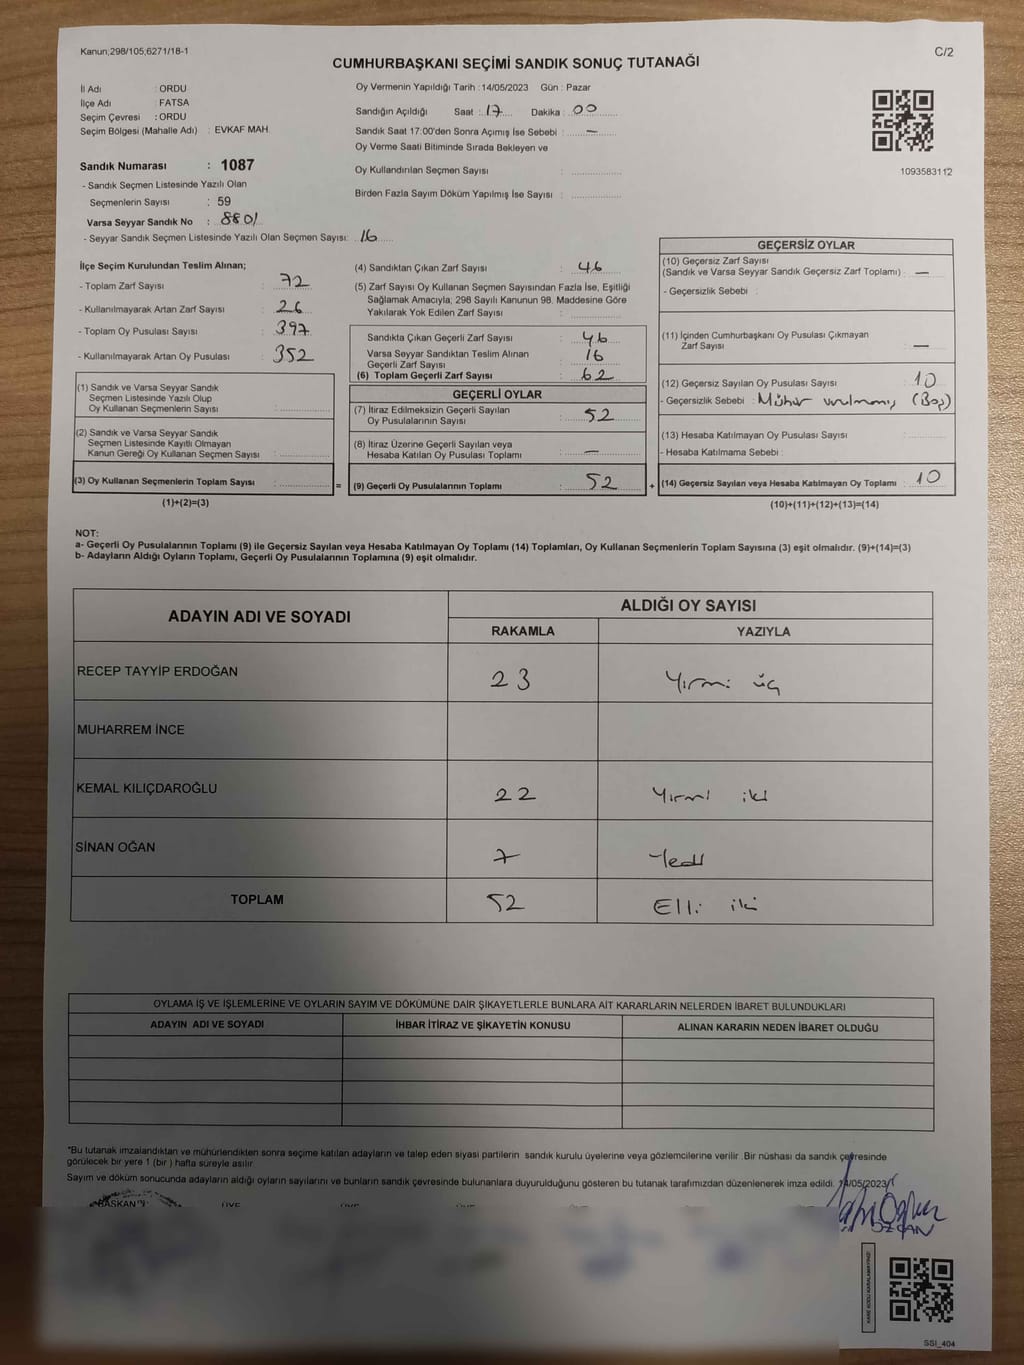 Kanun;298/105;6271/18-1
C/2
CUMHURBAŞKANI SEÇİMİ SANDIK SONUÇ TUTANAĞI
İl Adı : ORDU
İlçe Adı : FATSA
Seçim Çevresi : ORDU
Seçim Bölgesi (Mahalle Adı) : EVKAF MAH.
Sandık Numarası : 1087
- Sandık Seçmen Listesinde Yazılı Olan
Seçmenlerin Sayısı : 59
Varsa Seyyar Sandık No : 8801
- Seyyar Sandık Seçmen Listesinde Yazılı Olan Seçmen Sayısı: 16
Oy Vermenin Yapıldığı Tarih :14/05/2023 Gün : Pazar
Sandığın Açıldığı Saat : 17 Dakika : 00
Sandık Saat 17:00'den Sonra Açımış İse Sebebi : —
Oy Verme Saati Bitiminde Sırada Bekleyen ve
Oy Kullandırılan Seçmen Sayısı :
Birden Fazla Sayım Döküm Yapılmış İse Sayısı :
1093583112
İlçe Seçim Kurulundan Teslim Alınan;
- Toplam Zarf Sayısı : 72
- Kullanılmayarak Artan Zarf Sayısı : 26
- Toplam Oy Pusulası Sayısı : 397
- Kullanılmayarak Artan Oy Pusulası : 352
(1) Sandık ve Varsa Seyyar Sandık
Seçmen Listesinde Yazılı Olup
Oy Kullanan Seçmenlerin Sayısı :
(2) Sandık ve Varsa Seyyar Sandık
Seçmen Listesinde Kayıtlı Olmayan
Kanun Gereği Oy Kullanan Seçmen Sayısı :
(3) Oy Kullanan Seçmenlerin Toplam Sayısı :
(1)+(2)=(3)
(4) Sandıktan Çıkan Zarf Sayısı : 46
(5) Zarf Sayısı Oy Kullanan Seçmen Sayısından Fazla İse, Eşitliği
Sağlamak Amacıyla; 298 Sayılı Kanunun 98. Maddesine Göre
Yakılarak Yok Edilen Zarf Sayısı :
Sandıkta Çıkan Geçerli Zarf Sayısı : 46
Varsa Seyyar Sandıktan Teslim Alınan
Geçerli Zarf Sayısı : 16
(6) Toplam Geçerli Zarf Sayısı : 62
GEÇERLİ OYLAR
(7) İtiraz Edilmeksizin Geçerli Sayılan
Oy Pusulalarının Sayısı : 52
(8) İtiraz Üzerine Geçerli Sayılan veya
Hesaba Katılan Oy Pusulası Toplamı : —
= (9) Geçerli Oy Pusulalarının Toplamı : 52 +
GEÇERSİZ OYLAR
(10) Geçersiz Zarf Sayısı
(Sandık ve Varsa Seyyar Sandık Geçersiz Zarf Toplamı) : —
- Geçersizlik Sebebi :
(11) İçinden Cumhurbaşkanı Oy Pusulası Çıkmayan
Zarf Sayısı : —
(12) Geçersiz Sayılan Oy Pusulası Sayısı : 10
- Geçersizlik Sebebi : Mühür vurulmamış (Boş)
(13) Hesaba Katılmayan Oy Pusulası Sayısı :
- Hesaba Katılmama Sebebi :
(14) Geçersiz Sayılan veya Hesaba Katılmayan Oy Toplamı : 10
(10)+(11)+(12)+(13)=(14)
NOT:
a- Geçerli Oy Pusulalarının Toplamı (9) ile Geçersiz Sayılan veya Hesaba Katılmayan Oy Toplamı (14) Toplamları, Oy Kullanan Seçmenlerin Toplam Sayısına (3) eşit olmalıdır. (9)+(14)=(3)
b- Adayların Aldığı Oyların Toplamı, Geçerli Oy Pusulalarının Toplamına (9) eşit olmalıdır.
ADAYIN ADI VE SOYADI
ALDIĞI OY SAYISI
RAKAMLA YAZIYLA
RECEP TAYYİP ERDOĞAN 23 Yirmi üç
MUHARREM İNCE
KEMAL KILIÇDAROĞLU 22 Yirmi iki
SİNAN OĞAN 7 Yedi
TOPLAM 52 Elli iki
OYLAMA İŞ VE İŞLEMLERİNE VE OYLARIN SAYIM VE DÖKÜMÜNE DAİR ŞİKAYETLERLE BUNLARA AİT KARARLARIN NELERDEN İBARET BULUNDUKLARI
ADAYIN ADI VE SOYADI İHBAR İTİRAZ VE ŞİKAYETİN KONUSU ALINAN KARARIN NEDEN İBARET OLDUĞU
*Bu tutanak imzalandıktan ve mühürlendikten sonra seçime katılan adayların ve talep eden siyasi partilerin sandık kurulu üyelerine veya gözlemcilerine verilir .Bir nüshası da sandık çevresinde
görülecek bir yere 1 (bir ) hafta süreyle asılır
Sayım ve döküm sonucunda adayların aldığı oyların sayılarını ve bunların sandık çevresinde bulunanlara duyurulduğunu gösteren bu tutanak tarafımızdan düzenlenerek imza edildi. 14/05/2023
BAŞKAN ÜYE ÜYE ÜYE
ÖZCAN
SSİ_404